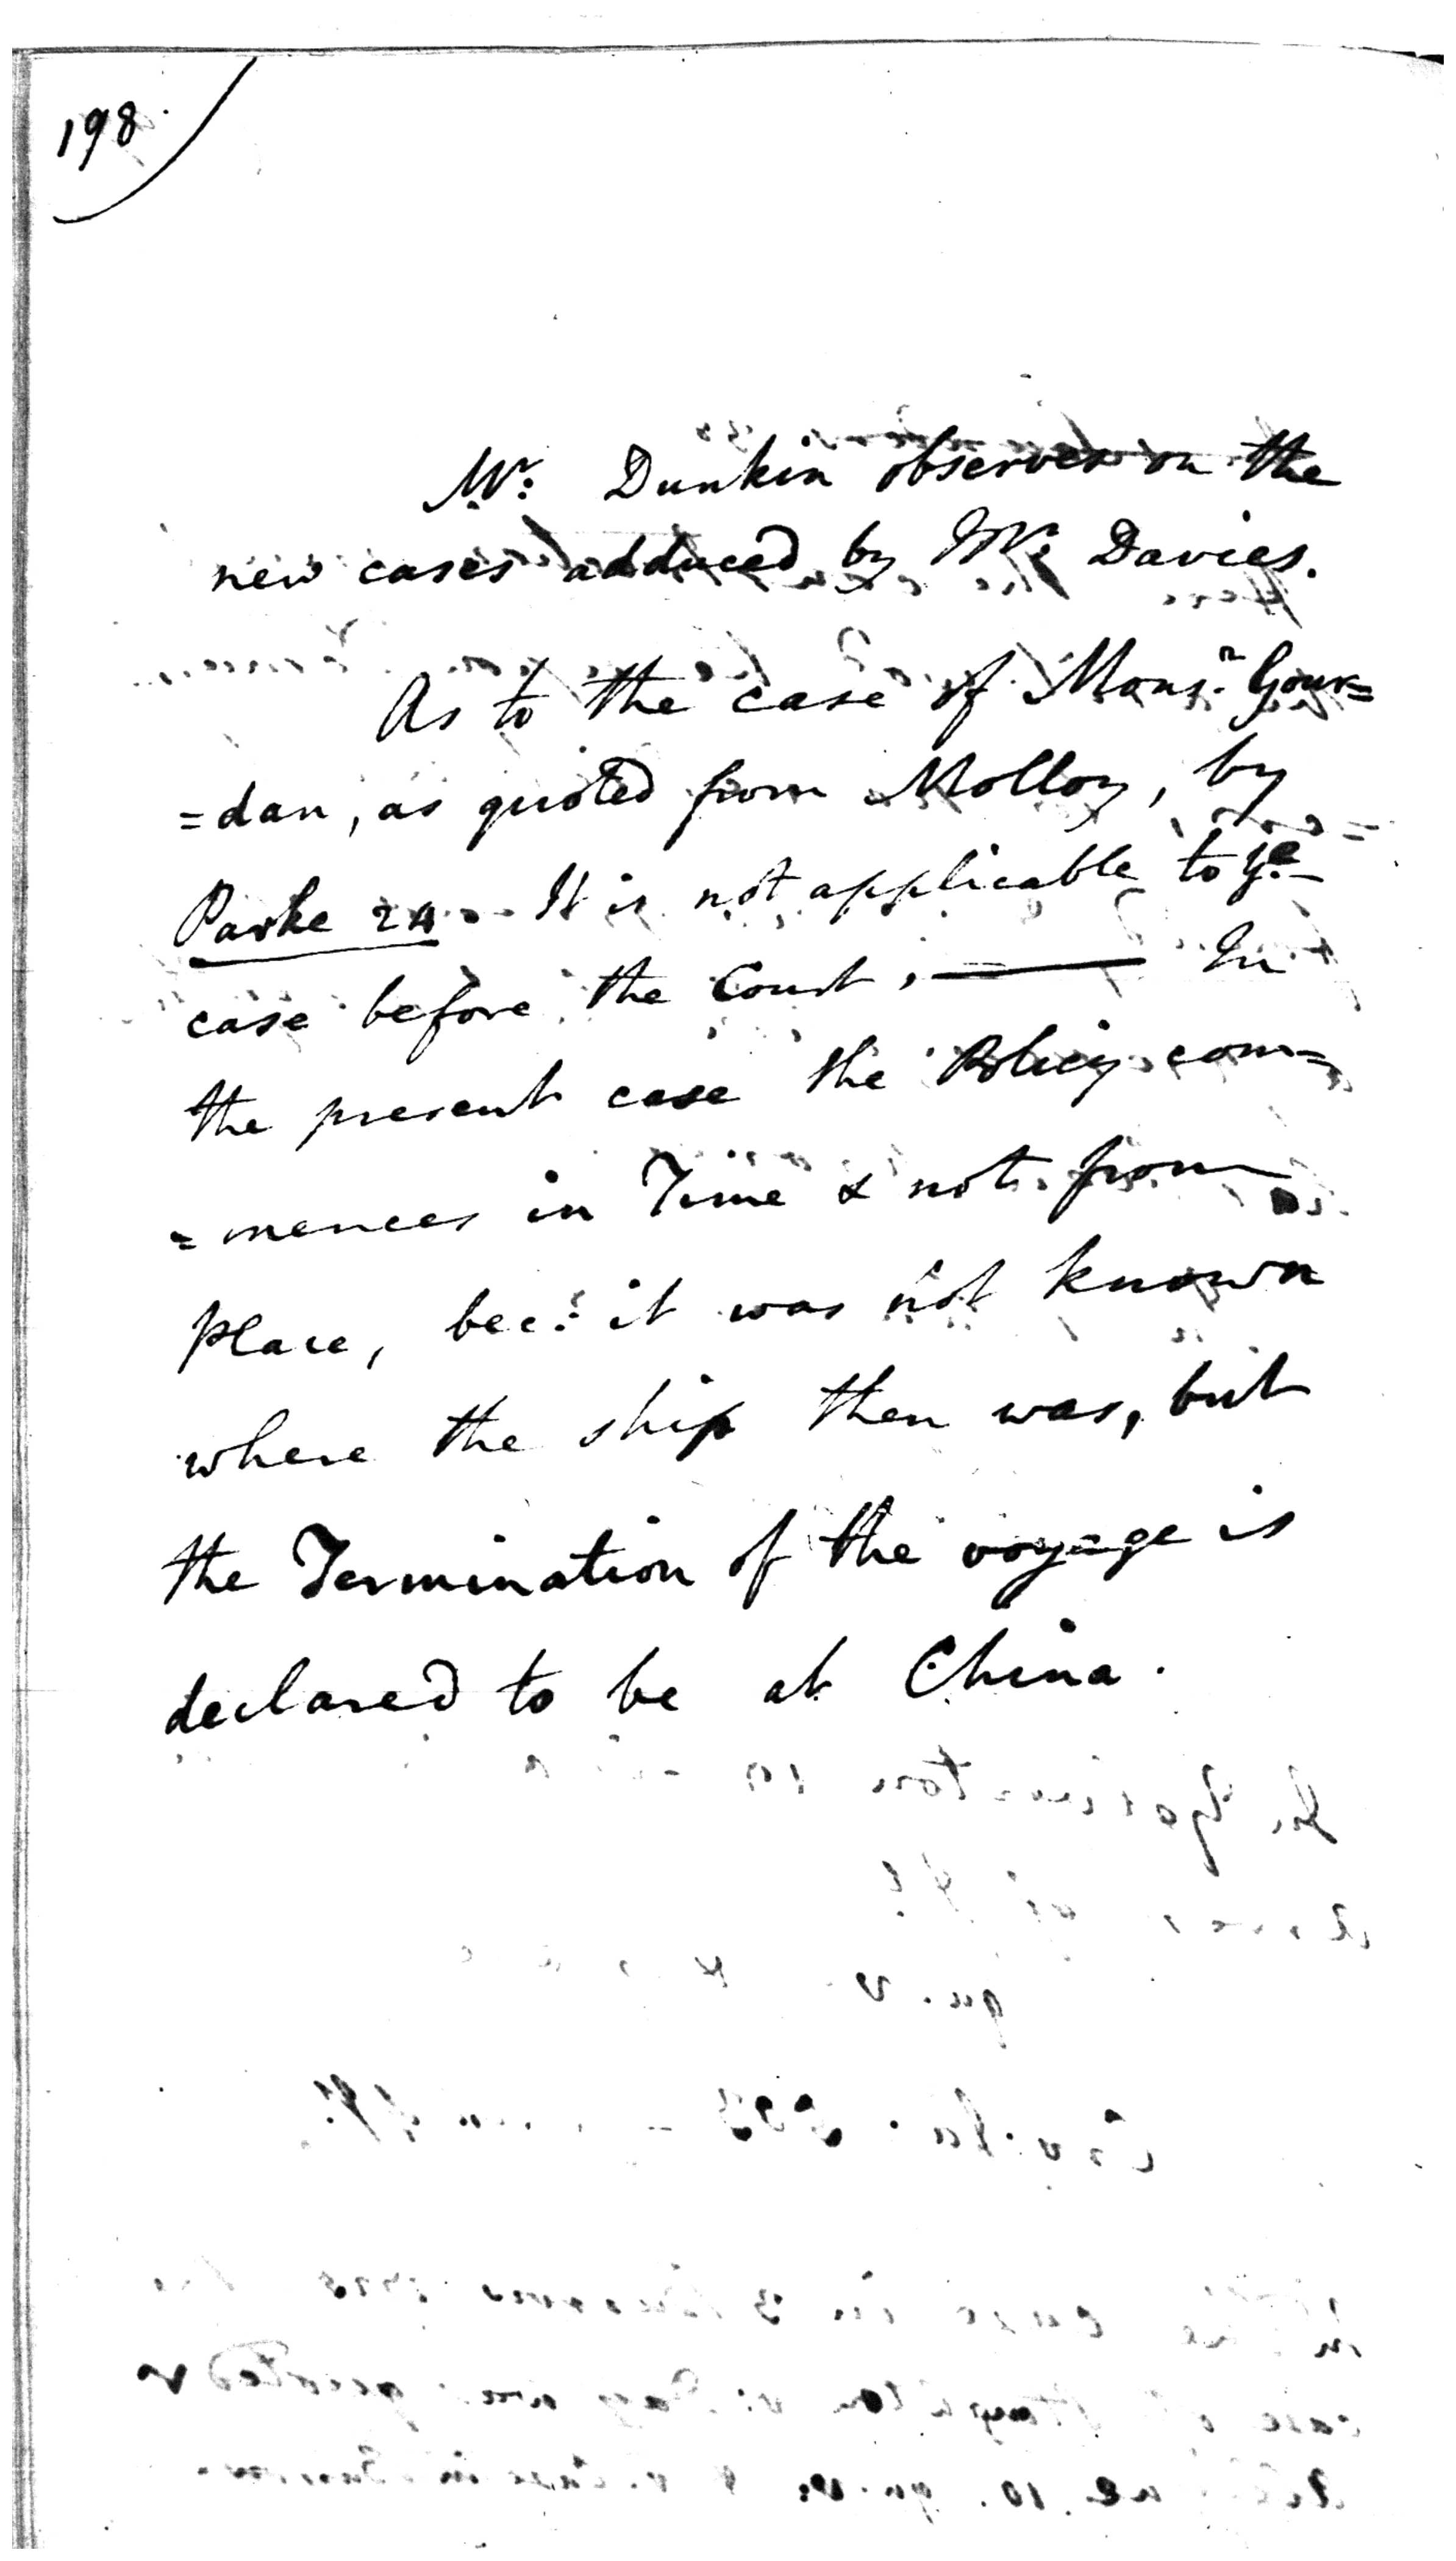 198
Mr: Dunkin observes on the
new cases adduced by Mr: Davies.
As to the case of Monsr. Gour=
=dan, as quoted from Molloy, by
Parke 24. It is not applicable to ye.
case before the Court, — In
the present case the Policy com=
=mences in Time & not from
Place, bec: it was not known
where the ship then was, but
the Termination of the voyage is
declared to be at China.